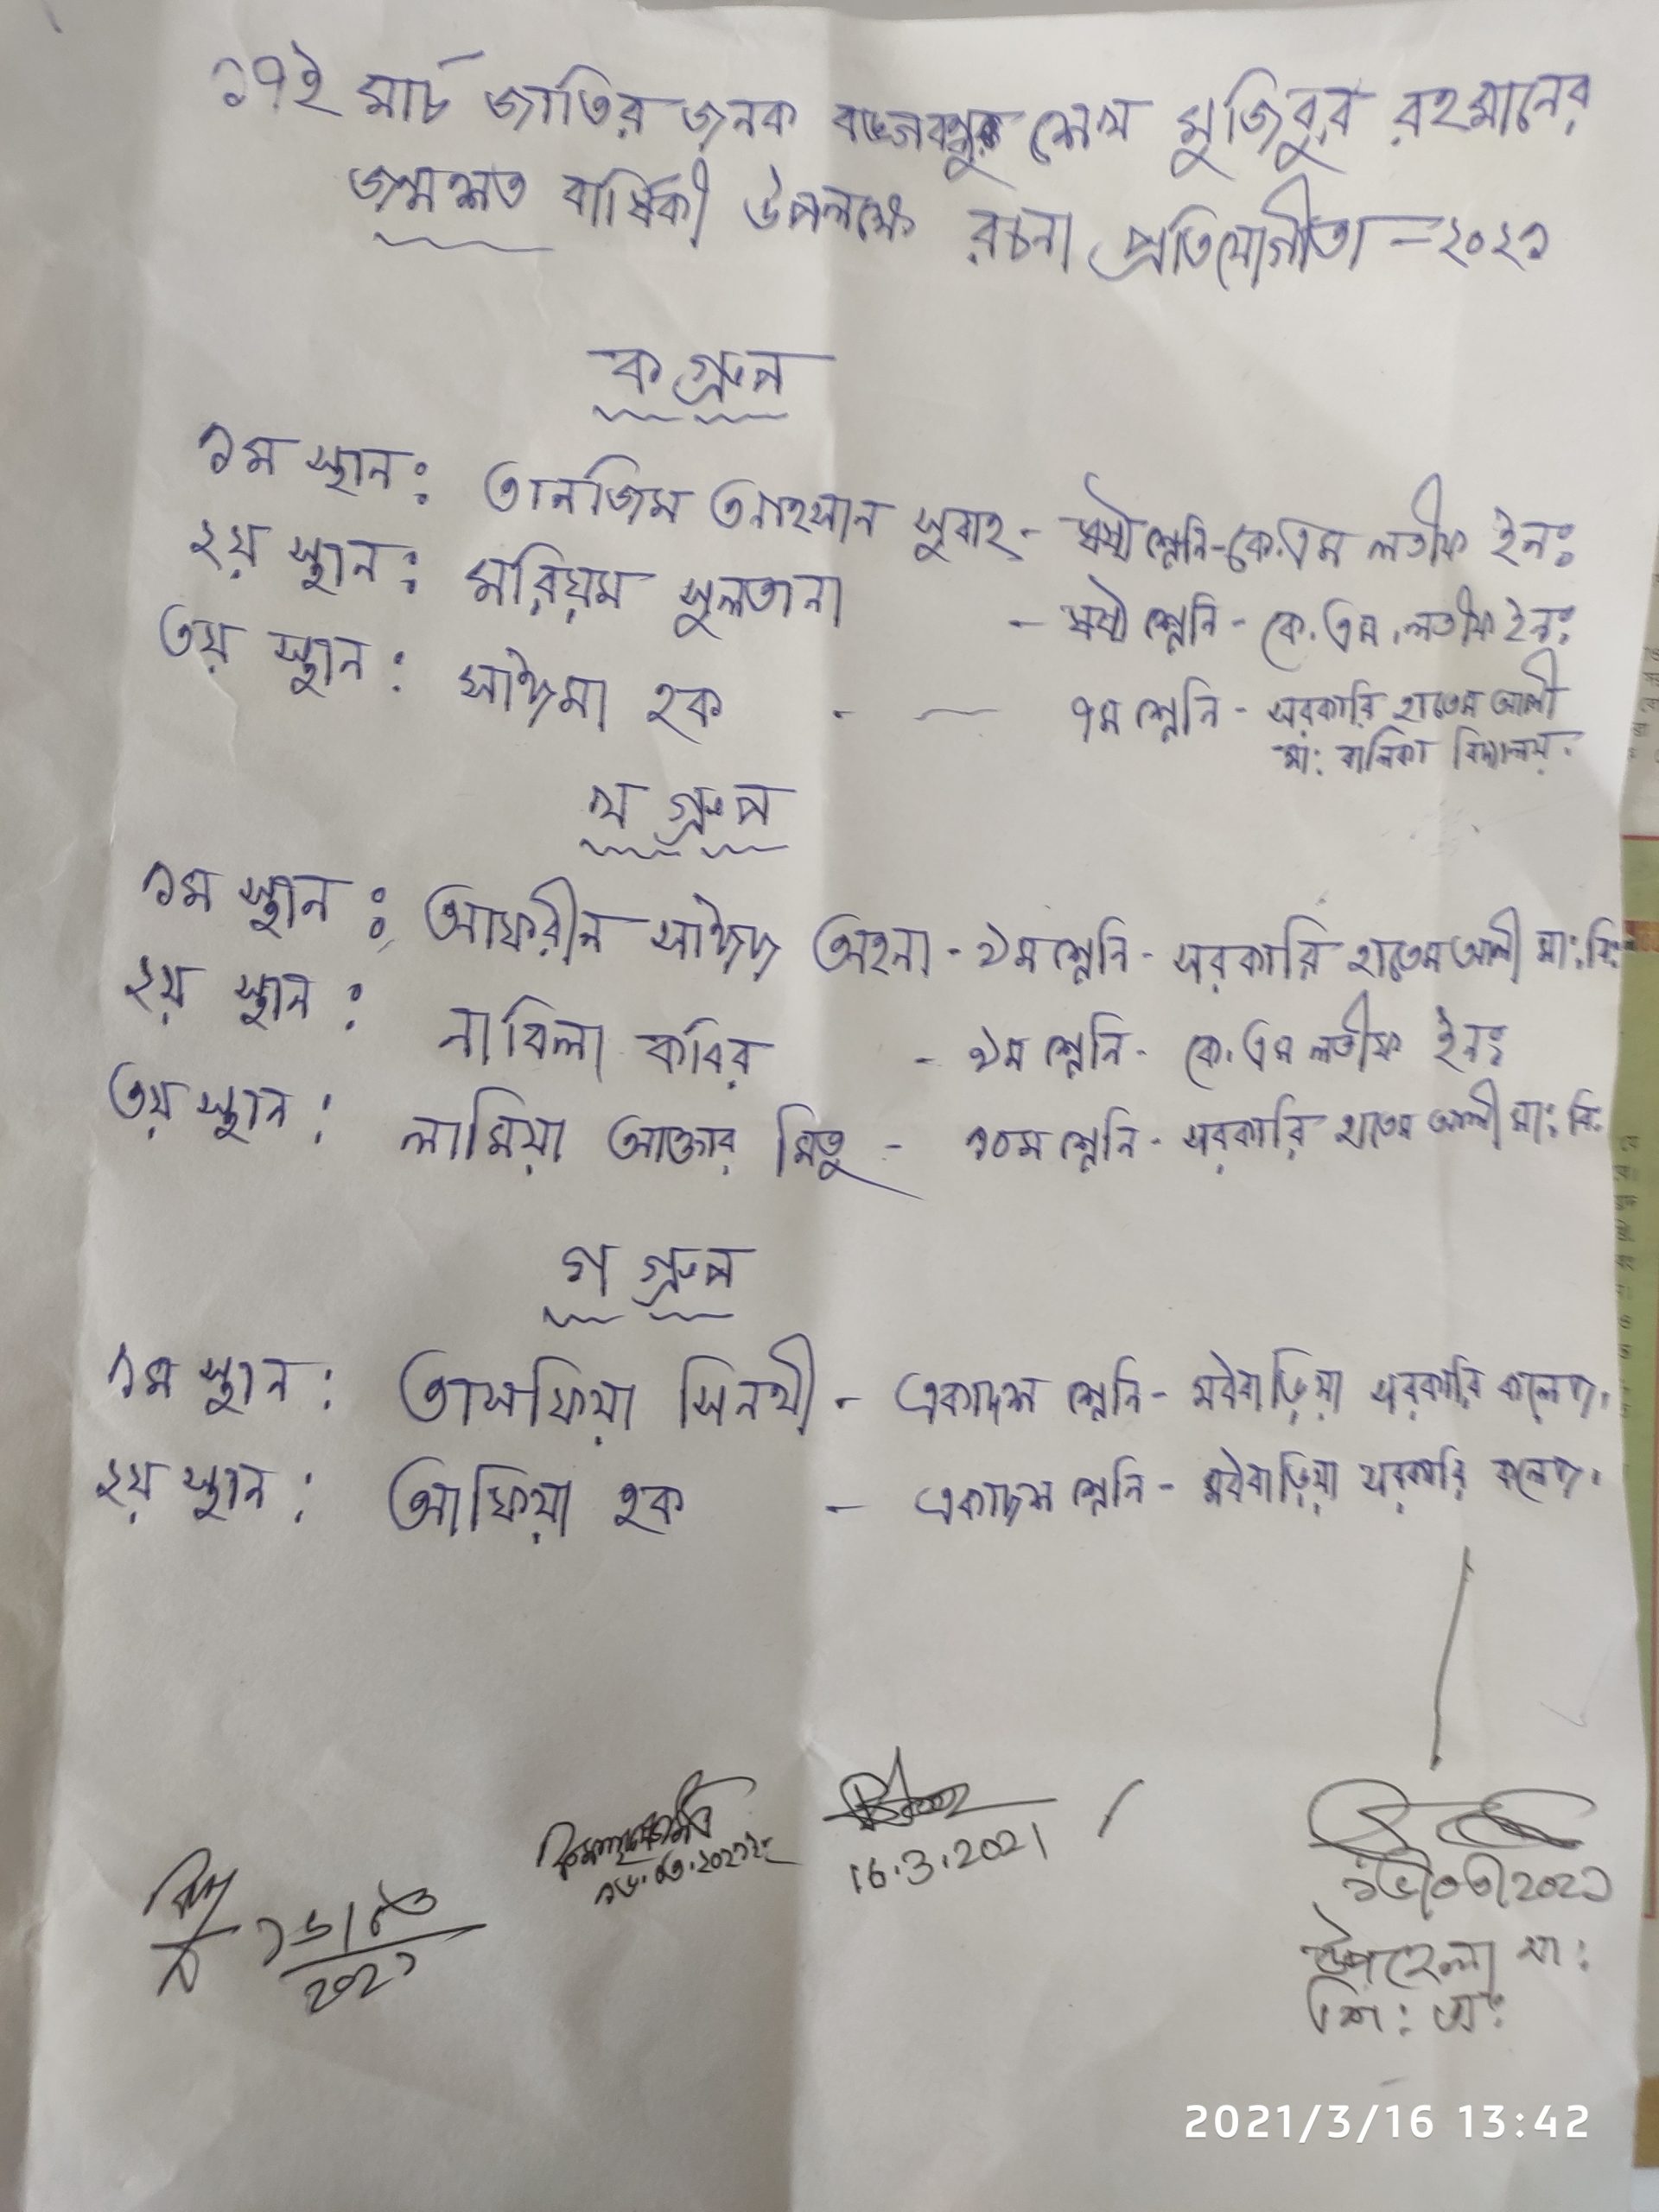 ১৭ই মার্চ জাতির জনক বঙ্গবন্ধুর শেখ মুজিবুর রহমানের
জন্মশত বার্ষিকী উপলক্ষে রচনা প্রতিযোগীতা - ২০২১
ক গ্রুপ
১ম স্থান: তানজিম তাহসান সুবাহ - ষষ্ঠ শ্রেনি - কে.এম লতীফ ইনঃ
২য় স্থান: মরিয়ম সুলতানা - ষষ্ঠ শ্রেনি - কে.এম. লতীফ ইনঃ
৩য় স্থান: সাইমা হক - - ৭ম শ্রেনি - সরকারি হাতেম আলী
মা: বালিকা বিদ্যালয়.
খ গ্রুপ
১ম স্থান: আফরীন সাঈদ অহনা - ৯ম শ্রেনি - সরকারি হাতেম আলী মা: বি:
২য় স্থান: নাবিলা কবির - ৯ম শ্রেনি - কে.এম লতীফ ইনঃ
৩য় স্থান: লামিয়া আক্তার মিতু - ১০ম শ্রেনি - সরকারি হাতেম আলী মা: বি:
গ গ্রুপ
১ম স্থান: তাসফিয়া সিনথী - একাদশ শ্রেনি - মঠবাড়িয়া সরকারি কলেজ.
২য় স্থান: আফিয়া হক - একাদশ শ্রেনি - মঠবাড়িয়া সরকারি কলেজ.
16.3.2021
১৬/০৩/২০২১
উপজেলা মা:
শি: অ:
2021/3/16 13:42